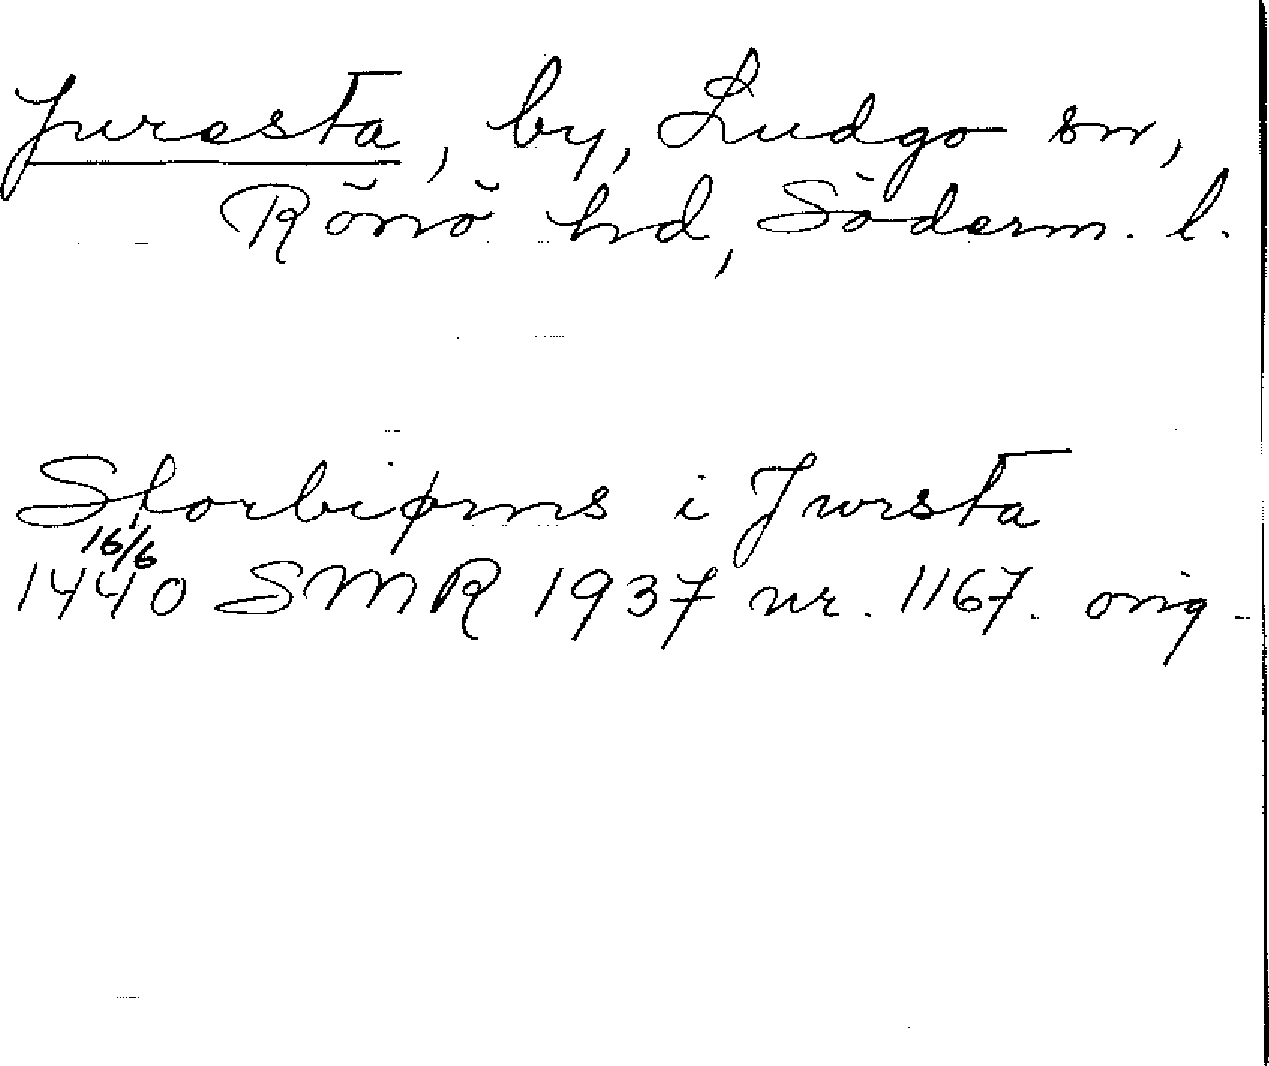 Juresta, by, Ludgo sn,
Rönö hd, Söderm. l.
Storbiørns i Jursta
16/6
1440 SMR 1937 nr. 1167. orig.